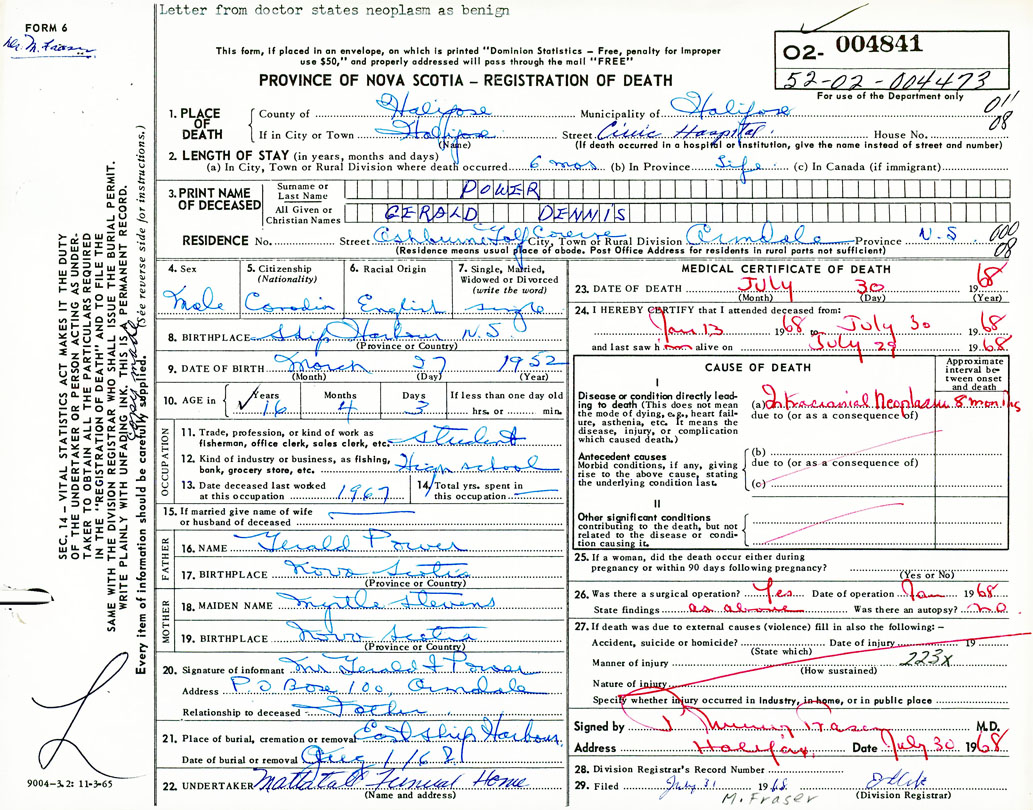 Letter from doctor states neoplasm as benign
FORM 6
Dr. M. Fraser
This form, if placed in an envelope, on which is printed "Dominion Statistics – Free, penalty for Improper
use $50," and properly addressed will pass through the mail "FREE"
PROVINCE OF NOVA SCOTIA – REGISTRATION OF DEATH
O2- 004841
52-02-004473
For use of the Department only
011
08
1. PLACE OF DEATH
County of Halifax Municipality of Halifax
If in City or Town Halifax Street Civic Hospital House No.
(Name) (If death occurred in a hospital or institution, give the name instead of street and number)
2. LENGTH OF STAY (in years, months and days)
(a) In City, Town or Rural Division where death occurred 6 mos (b) In Province Life (c) In Canada (if immigrant)
3. PRINT NAME OF DECEASED
Surname or Last Name POWER
All Given or Christian Names GERALD DENNIS
RESIDENCE No. Street Ashburn Golf Course City, Town or Rural Division Armdale Province N.S.
(Residence means usual place of abode. Post Office Address for residents in rural parts not sufficient)
000
08
4. Sex Male
5. Citizenship (Nationality) Canadin
6. Racial Origin English
7. Single, Married, Widowed or Divorced (write the word) single
8. BIRTHPLACE Ship Harbour N.S
(Province or Country)
9. DATE OF BIRTH March 27 1952
(Month) (Day) (Year)
10. AGE in Years 16 Months 4 Days 3 If less than one day old hrs. or min.
OCCUPATION
11. Trade, profession, or kind of work as fisherman, office clerk, sales clerk, etc. student
12. Kind of industry or business, as fishing, bank, grocery store, etc. High school
13. Date deceased last worked at this occupation 1967
14. Total yrs. spent in this occupation
15. If married give name of wife or husband of deceased
FATHER
16. NAME Gerald Power
17. BIRTHPLACE Nova Scotia
(Province or Country)
MOTHER
18. MAIDEN NAME Myrtle Stevens
19. BIRTHPLACE Nova Scotia
(Province or Country)
20. Signature of informant Mr Gerald J Power
Address P O Box 100, Armdale
Relationship to deceased Father
21. Place of burial, cremation or removal East Ship Harbour
Date of burial or removal Aug 1/68
22. UNDERTAKER Mattatall Funeral Home
(Name and address)
MEDICAL CERTIFICATE OF DEATH
23. DATE OF DEATH July 30 1968
(Month) (Day) (Year)
24. I HEREBY CERTIFY that I attended deceased from:
Jan 13 1968 to July 30 1968
and last saw him alive on July 29 1968.
CAUSE OF DEATH
Approximate interval between onset and death
I
Disease or condition directly leading to death (This does not mean the mode of dying, e.g., heart failure, asthenia, etc. It means the disease, injury, or complication which caused death.)
(a) Intracranial Neoplasm 8 months
due to (or as a consequence of)
Antecedent causes
Morbid conditions, if any, giving rise to the above cause, stating the underlying condition last.
(b)
due to (or as a consequence of)
(c)
II
Other significant conditions contributing to the death, but not related to the disease or condition causing it.
25. If a woman, did the death occur either during pregnancy or within 90 days following pregnancy?
(Yes or No)
26. Was there a surgical operation? Yes Date of operation Jan 1968
State findings as above Was there an autopsy? no
27. If death was due to external causes (violence) fill in also the following: –
Accident, suicide or homicide? Date of injury 19
(State which)
Manner of injury 223X
(How sustained)
Nature of injury
Specify whether injury occurred in Industry, in home, or in public place
Signed by M.D.
Address Halifax Date July 30 1968
28. Division Registrar's Record Number
29. Filed July 31 1968
(Division Registrar)
M. Fraser
SEC. 14 – VITAL STATISTICS ACT MAKES IT THE DUTY
OF THE UNDERTAKER OR PERSON ACTING AS UNDER-
TAKER TO OBTAIN ALL THE PARTICULARS REQUIRED
IN THE "REGISTRATION OF DEATH" AND TO FILE THE
SAME WITH THE DIVISION REGISTRAR WHO SHALL ISSUE THE BURIAL PERMIT.
WRITE PLAINLY WITH UNFADING INK. THIS IS A PERMANENT RECORD.
Every item of information should be carefully supplied. (See reverse side for instructions.)
Copy made
9004-3.2: 11-3-65